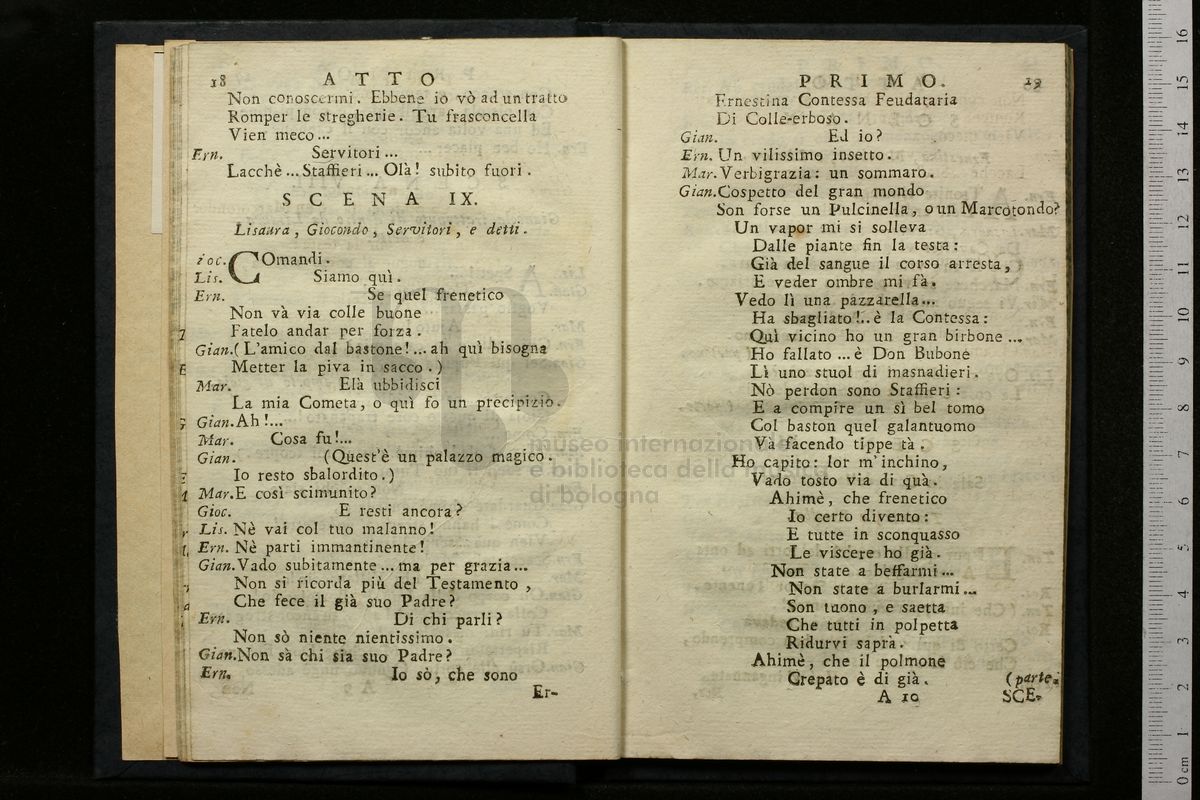 18 ATTO
Non conoscermi. Ebbene io vò ad un tratto
Romper le stregherie. Tu frasconcella
Vien meco...
Ern. Servitori...
Lacchè... Staffieri... Olà! subito fuori.
SCENA IX.
Lisaura, Giocondo, Servitori, e detti.
ioc. COmandi.
Lis. Siamo quì.
Ern. Se quel frenetico
Non và via colle buone
Fatelo andar per forza.
Gian. (L'amico dal bastone!... ah quì bisogna
Metter la piva in sacco.)
Mar. Elà ubbidisci
La mia Cometa, o quì fo un precipizio.
Gian. Ah!...
Mar. Cosa fu!...
Gian. (Quest'è un palazzo magico.
Io resto sbalordito.)
Mar. E così scimunito?
Gioc. E resti ancora?
Lis. Nè vai col tuo malanno!
Ern. Nè parti immantinente!
Gian. Vado subitamente... ma per grazia...
Non si ricorda più del Testamento,
Che fece il già suo Padre?
Ern. Di chi parli?
Non sò niente nientissimo.
Gian. Non sà chi sia suo Padre?
Ern. Io sò, che sono
Er-
PRIMO. 19
Ernestina Contessa Feudataria
Di Colle-erboso.
Gian. Ed io?
Ern. Un vilissimo insetto.
Mar. Verbigrazia: un sommaro.
Gian. Cospetto del gran mondo
Son forse un Pulcinella, o un Marcotondo?
Un vapor mi si solleva
Dalle piante fin la testa:
Già del sangue il corso arresta,
E veder ombre mi fà.
Vedo lì una pazzarella...
Ha sbagliato!.. è la Contessa:
Quì vicino ho un gran birbone...
Ho fallato... è Don Bubone
Lì uno stuol di masnadieri.
Nò perdon sono Staffieri:
E a compire un sì bel tomo
Col baston quel galantuomo
Va facendo tippe tà.
Ho capito: lor m'inchino,
Vado tosto via di quà.
Ahimè, che frenetico
Io certo divento:
E tutte in sconquasso
Le viscere ho già.
Non state a beffarmi...
Non state a burlarmi...
Son tuono, e saetta
Che tutti in polpetta
Ridurvi saprà.
Ahimè, che il polmone
Crepato è di già. (parte.
A 10 SCE-
museo internazionale
e biblioteca della musica
di bologna